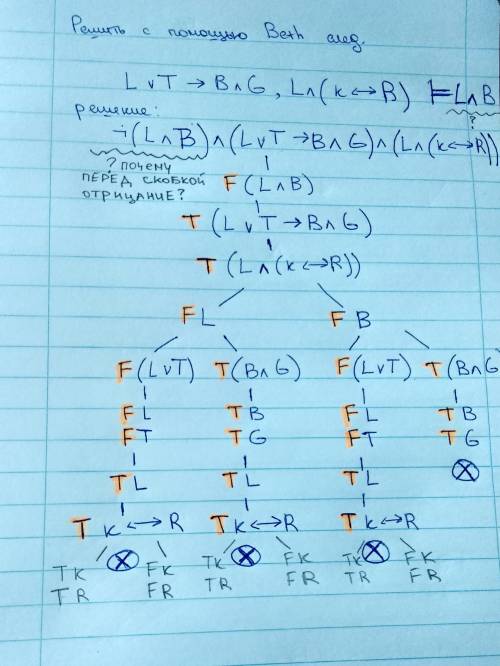 Решить с помощью Beth след.
L ∨ T → B ∧ G , L ∧ ( K ↔ R ) ⊨ L ∧ B
решение: ?
¬ (L ∧ B) ∧ (L ∨ T → B ∧ G) ∧ (L ∧ (K ↔ R))
? почему
ПЕРЕД СКОБКОЙ F (L ∧ B)
ОТРИЦАНИЕ?
T (L ∨ T → B ∧ G)
T (L ∧ (K ↔ R))
F L F B
F (L ∨ T) T (B ∧ G) F (L ∨ T) T (B ∧ G)
F L T B F L T B
F T T G F T T G
T L T L T L ⊗
T K ↔ R T K ↔ R T K ↔ R
T K ⊗ F K T K ⊗ F K T K ⊗ F K
T R F R T R F R T R F R